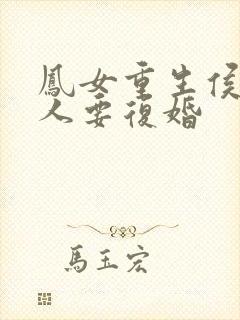 鳳女重生侯
人要復婚
馬玉宏